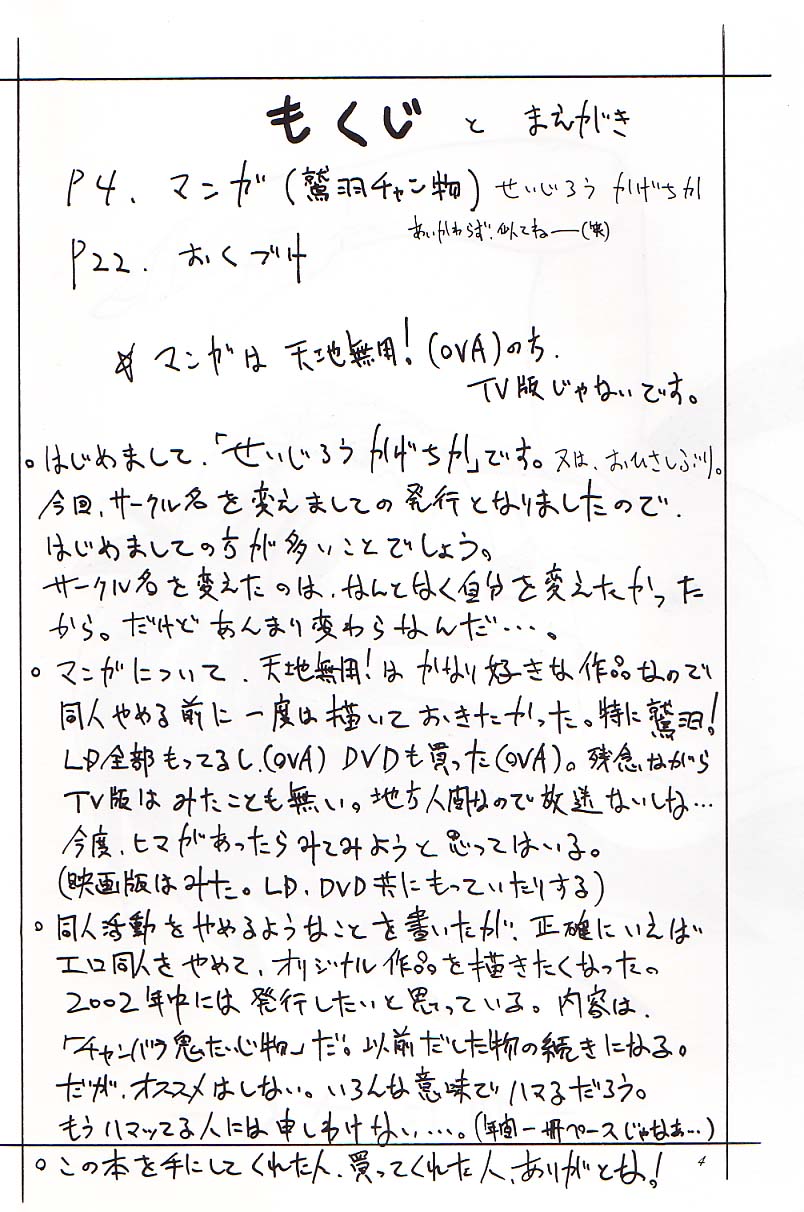 もくじ と まえがき
P4. マンガ(鷲羽チャン物) せいじろう かげちか
あいかわらず、似てねー(笑)
P22. おくづけ
☆ マンガは 天地無用!(OVA)のち.
TV版じゃないです。
○はじめまして、「せいじろう かげちか」です。又は、おひさしぶり。
今回、サークル名を変えましての発行となりましたので、
はじめましての方が多いことでしょう。
サークル名を変えたのは、なんとなく自分を変えたかった
から。だけど あんまり変わらなんだ…。
○マンガについて、天地無用!は かなり好きな作品なので
同人やめる前に一度は描いておきたかった。特に鷲羽!
LD全部もってるし、(OVA) DVDも買った(OVA)。残念ながら
TV版は みたことも無い。地方人間なので放送ないしな…
今度、ヒマがあったら みてみようと思ってはいる。
(映画版はみた。LD、DVD共にもっていたりする)
○同人活動をやめるようなことを書いたが、正確にいえば
エロ同人をやめて、オリジナル作品を描きたくなったの。
2002年中には発行したいと思っている。内容は、
「チャンバラ鬼たいじ物」だ。以前だした物の続きになる。
だが、オススメはしない。いろんな意味でハマるだろう。
もうハマッてる人には申しわけない…。(年間一冊ペースじゃなぁ…)
○この本を手にしてくれた人、買ってくれた人、ありがとな!
4